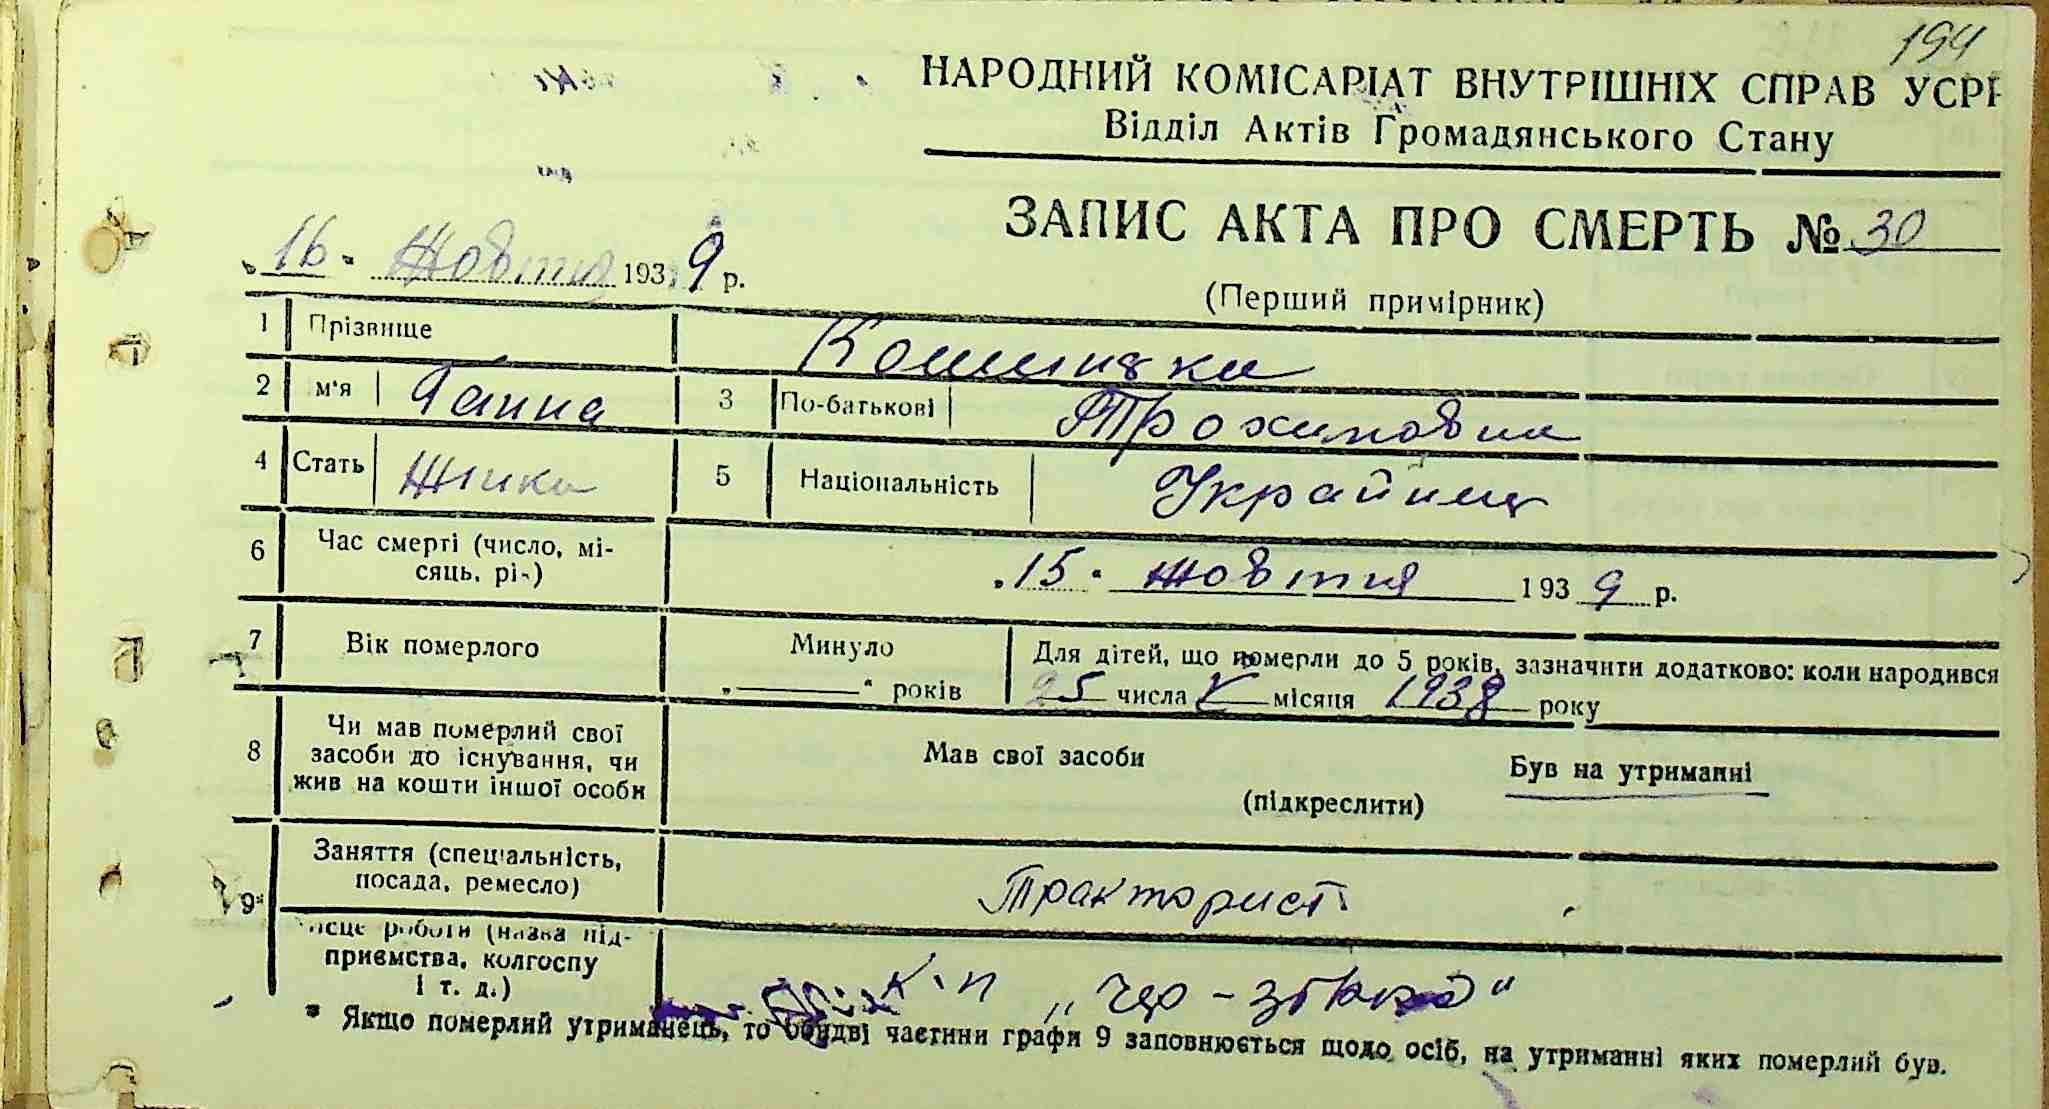 194
НАРОДНИЙ КОМІСАРІАТ ВНУТРІШНІХ СПРАВ УСРР
Відділ Актів Громадянського Стану
ЗАПИС АКТА ПРО СМЕРТЬ № 30
„16" Жовтня 1939 р.
(Перший примірник)
1 Прізвище
2 м'я Ганна 3 По-батькові Трохимовна
4 Стать Жінка 5 Національність Украйинец
6 Час смерті (число, мі-
сяць, рік) „15" жовтня 1939 р.
7 Вік померлого Минуло Для дітей, що померли до 5 років, зазначити додатково: коли народився
„—" років 25 числа X місяця 1938 року
8 Чи мав померлий свої
засоби до існування, чи
жив на кошти іншої особи
Мав свої засоби Був на утриманні
(підкреслити)
9* Заняття (спеціальність,
посада, ремесло) Тракторист
ісце роботи (назва під-
приємства, колгоспу
і т. д.) К-п
* Якщо померлий утриманець, то обидві частини графи 9 заповнюється щодо осіб, на утриманні яких померлий був.